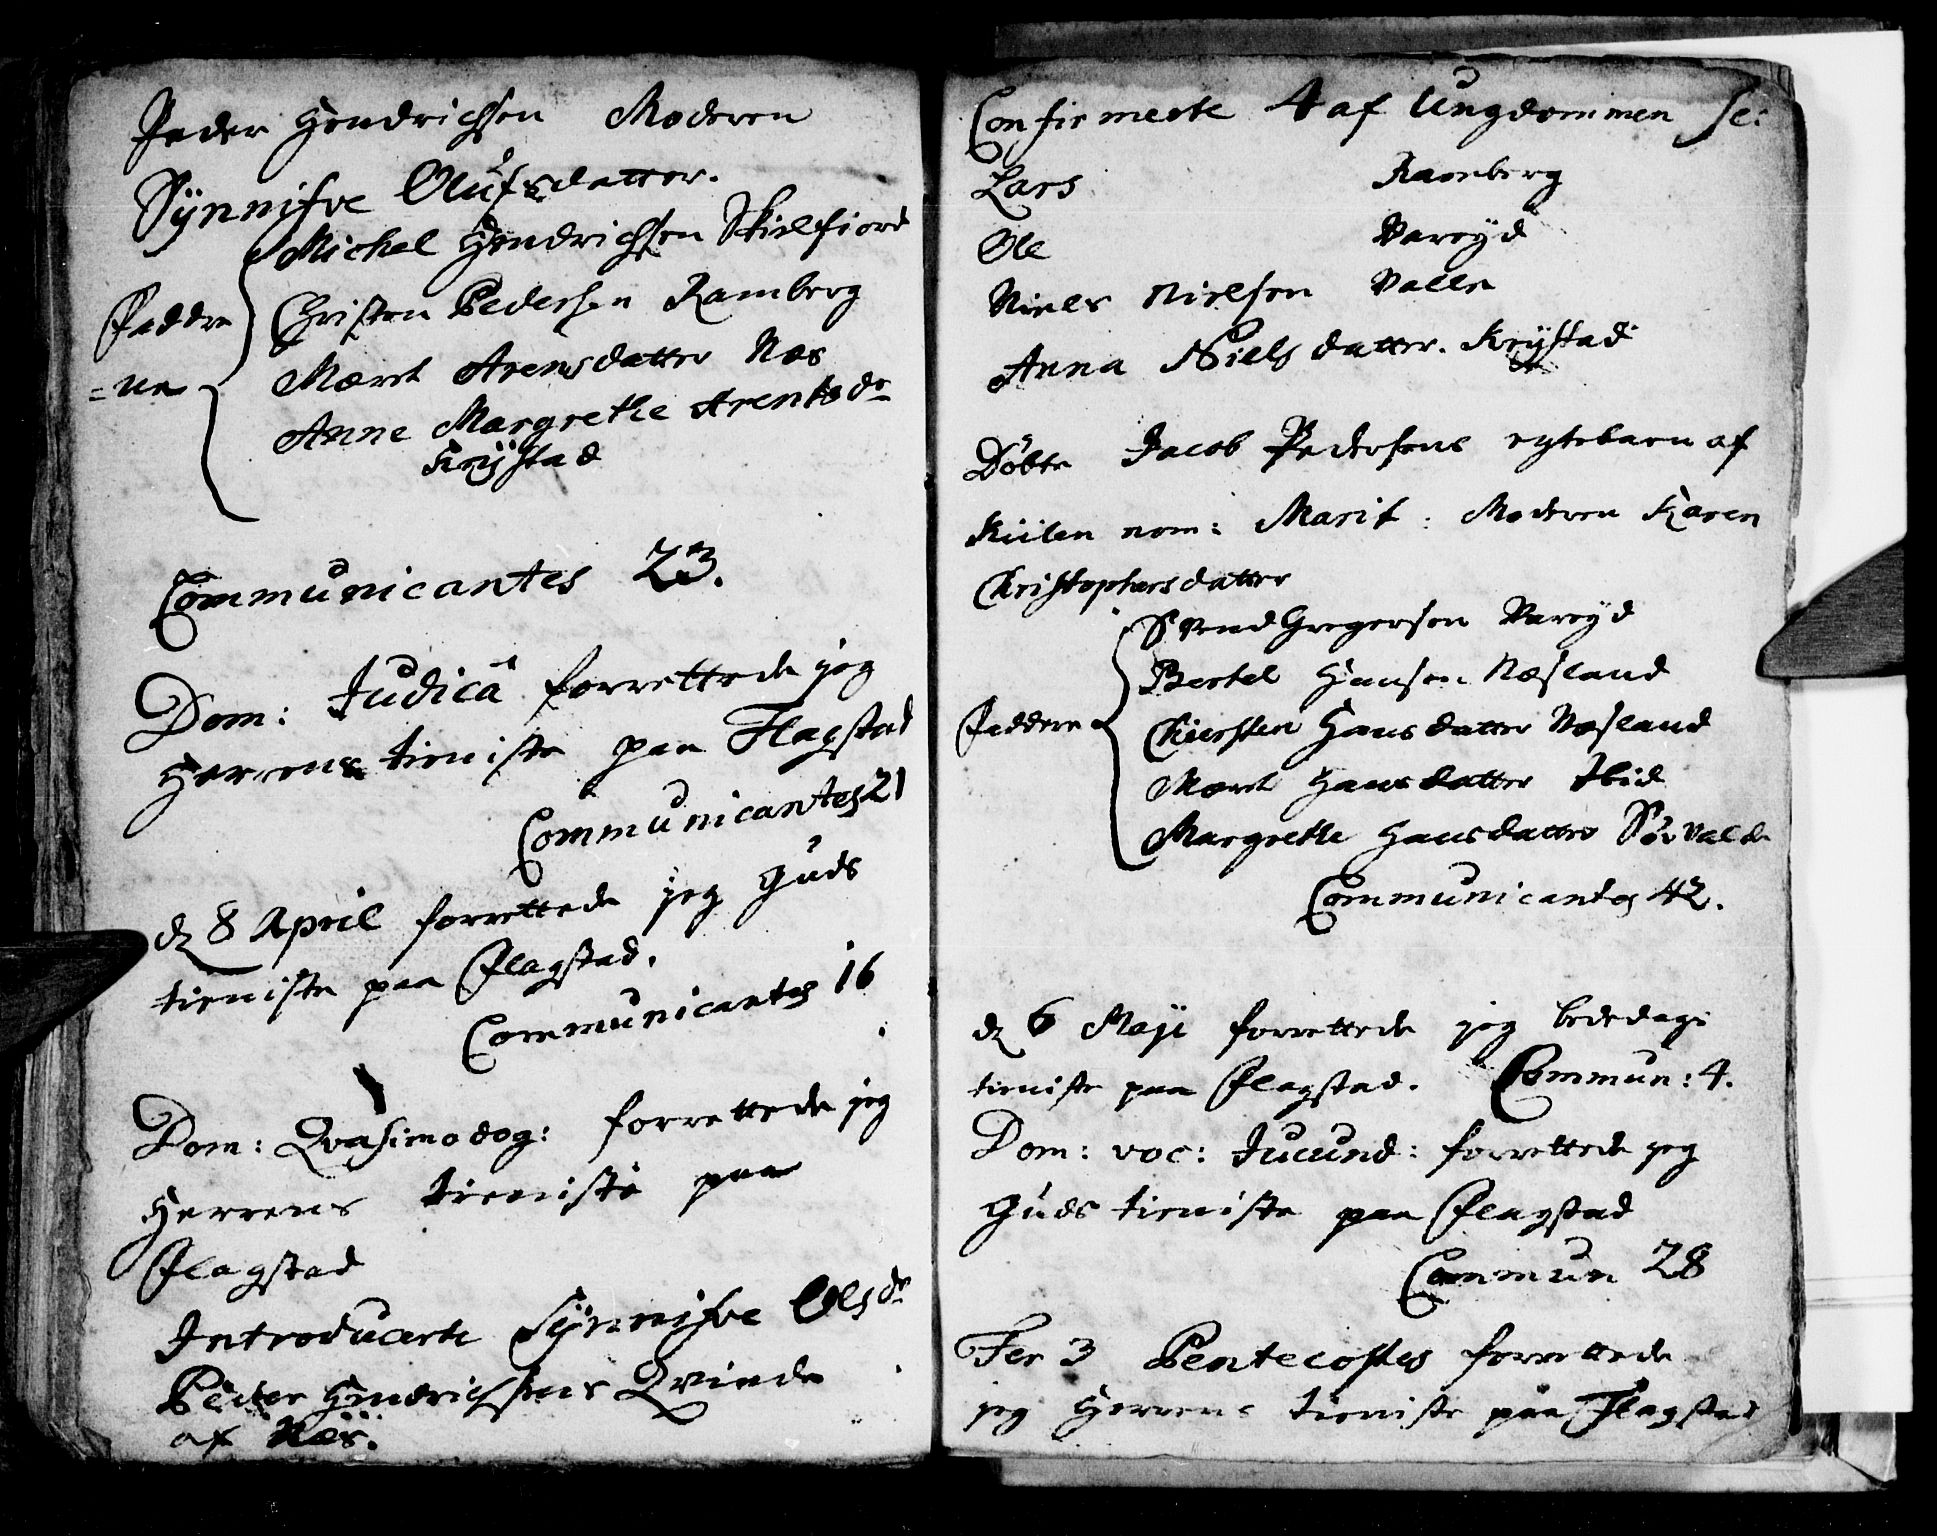 Peder Hendrichsen Moderen
Synnifve Olufsdatter.
Michel Hendrichsen Skielfiord
Faddre Christen Pedersen Ramberg
=ne Mæret Arensdatter Næs
Anne Margrethe Arentsdr
Krÿstad
Communicantes 23.
Dom: Judica forrettede jeg
Herrens tieniste paa Flagstad
Communicantes 21
d 8 April forrettede jeg Guds
tieniste paa Flagstad.
Communicantes 16
Dom: Qvasimodog: forrettede jeg
Herrens tieniste paa
Flagstad
Introducerte Sÿnnifve Olsdr
Peder Hendrichsens Qvinde
af Næs.
Confirmerte 4 af Ungdommen sc:
Lars Ramberg
Ole Vareÿd
Niels Nielsen Valle
Anna Nielsdatter. Krÿstad
Döbte Jacob Pedersens egtebarn af
Kiilen nom: Marit: Moderen Karen
Christophersdatter
Svend Gregersen Vareÿd
Bertel Hansen Næsland
Faddere Chiersten Hansdatter Næsland
Mæret Hansdatter Ibid
Margrethe Hansdatter Sörvalde
Communicantes 42.
d 6 Maji forrettede jeg bededags
tieniste paa Flagstad. Commun: 4.
Dom: voc: Jucund: forrettede jeg
Guds tieniste paa Flagstad
Commun 28
Fer 3 Pentecostes forrettede
jeg Herrens tieniste paa Flagstad